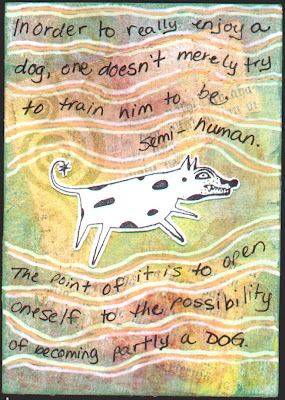 In order to really enjoy a
dog, one doesn't merely try
to train him to be
semi-human.
The point of it is to open
oneself to the possibility
of becoming partly a DOG.